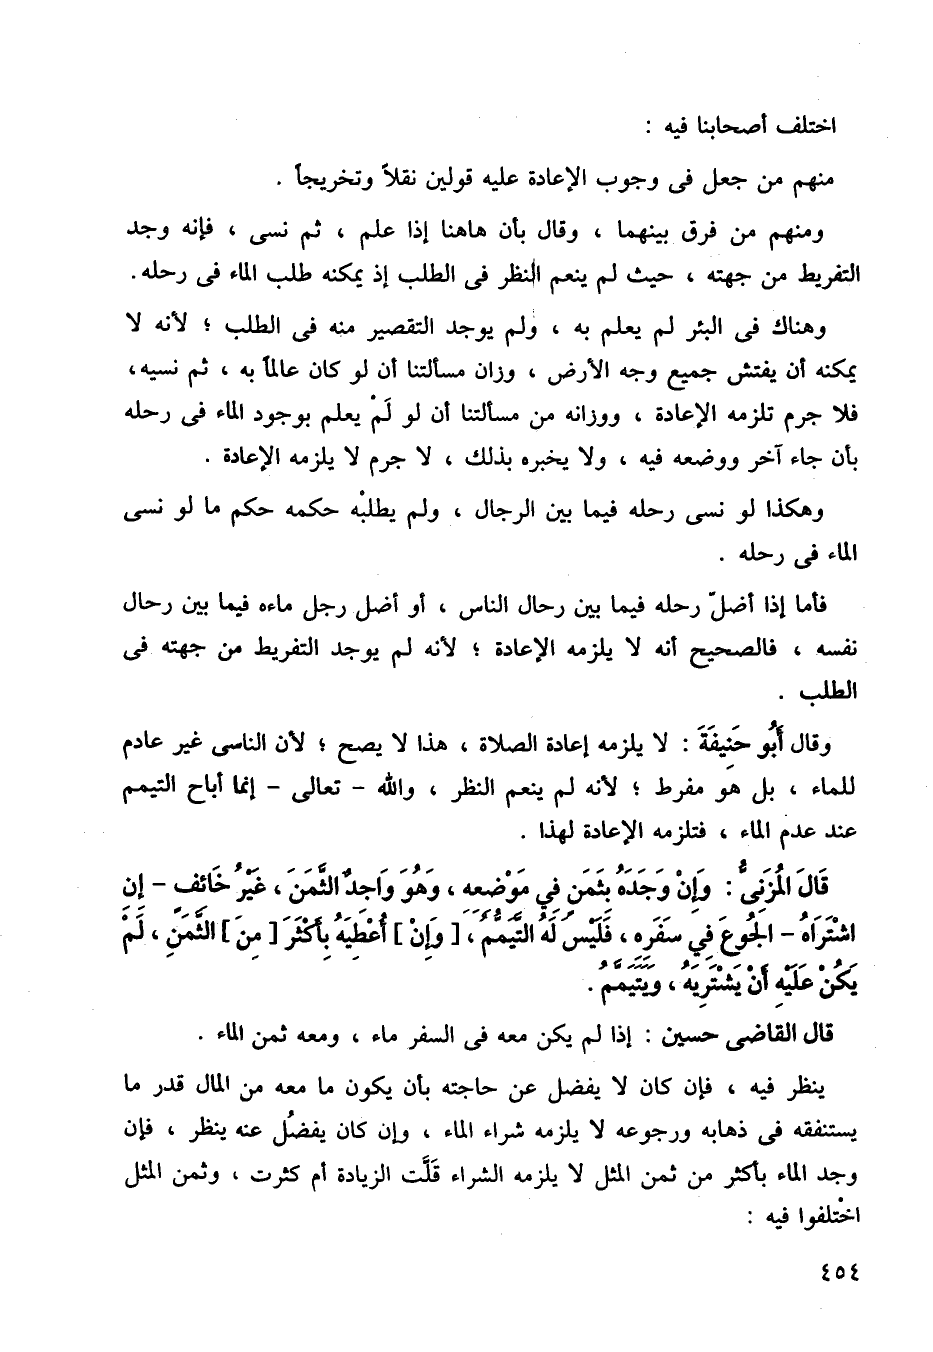 اختلف أصحابنا فيه :
منهم من جعل فى وجوب الإعادة عليه قولين نقلاً وتخريجاً .
ومنهم من فرق بينهما ، وقال بأن هاهنا إذا علم ، ثم نسى ، فإنه وجد
التفريط من جهته ، حيث لم ينعم النظر فى الطلب إذ يمكنه طلب الماء فى رحله .
وهناك فى البئر لم يعلم به ، ولم يوجد التقصير منه فى الطلب ؛ لأنه لا
يمكنه أن يفتش جميع وجه الأرض ، وزان مسألتنا أن لو كان عالماً به ، ثم نسيه ،
فلا جرم تلزمه الإعادة ، ووزانه من مسألتنا أن لو لَمْ يعلم بوجود الماء فى رحله
بأن جاء آخر ووضعه فيه ، ولا يخبره بذلك ، لا جرم لا يلزمه الإعادة .
وهكذا لو نسى رحله فيما بين الرجال ، ولم يطلبْه حكمه حكم ما لو نسى
الماء فى رحله .
فأما إذا أضلّ رحله فيما بين رحال الناس ، أو أضل رجل ماءه فيما بين رحال
نفسه ، فالصحيح أنه لا يلزمه الإعادة ؛ لأنه لم يوجد التفريط من جهته فى
الطلب .
وقال أَبُو حَنِيفَةَ : لا يلزمه إعادة الصلاة ، هذا لا يصح ؛ لأن الناسى غير عادم
للماء ، بل هو مفرط ؛ لأنه لم ينعم النظر ، والله - تعالى - إنما أباح التيمم
عند عدم الماء ، فتلزمه الإعادة لهذا .
قَالَ المُزَنِىُّ : وَإِنْ وَجَدَهُ بِثَمَنٍ فِي مَوْضِعِهِ ، وَهُوَ وَاجِدٌ الثَّمَنَ ، غَيْرُ خَائِفٍ - إِنِ
اشْتَرَاهُ - الجُوعَ فِي سَفَرِهِ ، فَلَيْسَ لَهُ التَّيَمُّمُ ، [ وَإِنْ ] أُعْطِيَهُ بِأَكْثَرَ [ مِنَ ] الثَّمَنِ ، لَمْ
يَكُنْ عَلَيْهِ أَنْ يَشْتَرِيَهُ ، وَيَتَيَمَّمُ .
قال القاضى حسين : إذا لم يكن معه فى السفر ماء ، ومعه ثمن الماء .
ينظر فيه ، فإن كان لا يفضل عن حاجته بأن يكون ما معه من المال قدر ما
يستنفقه فى ذهابه ورجوعه لا يلزمه شراء الماء ، وإن كان يفضُل عنه ينظر ، فإن
وجد الماء بأكثر من ثمن المثل لا يلزمه الشراء قَلَّت الزيادة أم كثرت ، وثمن المثل
اختْلفوا فيه :
٤٥٤